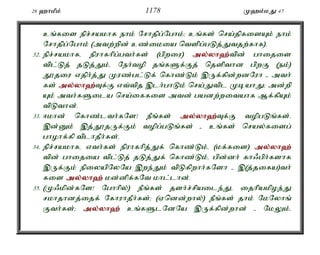 26 ஹாமீம் 1178 முஹம்மது 47
உங்களை நிச்சயமாக நாம் சோதிப்போம்; உங்கள் செய்திகளையும் நாம்
சோதிப்போம் (அவற்றின் உண்மையை வெளிப்படுத்துவதற்காக).
32. நிச்சயமாக, நிராகரிப்பவர்கள் (பிறரை) அல்லாஹ்வின் பாதையை
விட்டுத் தடுத்தும், நேர்வழி தங்களுக்குத் தெளிவான பிறகு (நம்)
தூதரை எதிர்த்து முரண்பட்டுக் கொண்டும் இருக்கின்றனரோ - அவர்
கள் அல்லாஹ்வுக்கு எவ்வித இடர்பாடும் செய்துவிட முடியாது; அன்றி
யும் அவர்களுடைய செய்கைகளை அவன் பயனற்றவையாக ஆக்கியும்
விடுவான்.
33. ஈமான் கொண்டவர்களே! நீங்கள் அல்லாஹ்வுக்கு வழிபடுங்கள்.
இன்னும் இத்தூதருக்கும் வழிப்படுங்கள் - உங்கள் செயல்களைப்
பாழாக்கி விடாதீர்கள்.
34. நிச்சயமாக, எவர்கள் நிராகரித்துக் கொண்டும், (மக்களை) அல்லாஹ்
வின் பாதையை விட்டுத் தடுத்துக் கொண்டும், பின்னர் காஃபிர்களாக
இருக்கும் நிலையிலேயே இறந்தும் விடுகிறார்களோ - இ(த்தகைய)வர்
களை அல்லாஹ் மன்னிக்கவே மாட்டான்.
35. (முஃமின்களே! போரில்) நீங்கள் தளர்ச்சியடைந்து, தைரியமிழந்து
சமாதானத்தைக் கோராதீர்கள்; (ஏனென்றால்) நீங்கள் தாம் மேலோங்
குவர்கள்; அல்லாஹ் உங்களுடனேயே இருக்கின்றான் - மேலும்,